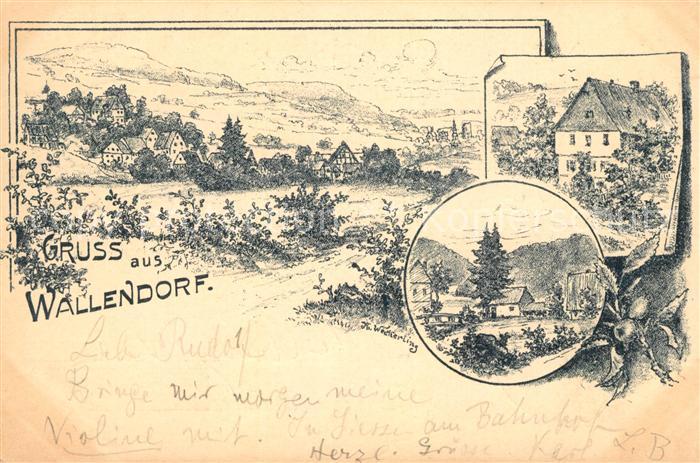 GRUSS aus
WALLENDORF.
Lieb Rudolf
Bringe mir morgen meine
Violine mit. In Giessen am Bahnhof
Herzl. Grüsse Karl L. B